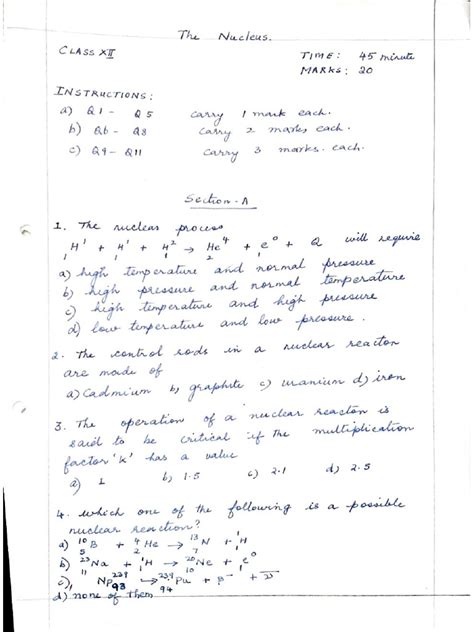 The Nucleus.
CLASS XII
TIME: 45 minute
MARKS: 20
INSTRUCTIONS:
a) Q1 - Q5 carry 1 mark each.
b) Q6 - Q8 carry 2 marks each.
c) Q9 - Q11 carry 3 marks. each.
Section-A
1. The nuclear process
₁H¹ + ₁H¹ + ₁H² → ₂He⁴ + ₁e⁰ + Q will require
a) high temperature and normal pressure
b) high pressure and normal temperature
c) high temperature and high pressure
d) low temperature and low pressure.
2. The control rods in a nuclear reactor
are made of
a) Cadmium b) graphite c) uranium d) iron
3. The operation of a nuclear reactor is
said to be critical if the multiplication
factor 'k' has a value
a) 1 b) 1.5 c) 2.1 d) 2.5
4. which one of the following is a possible
nuclear reaction?
a) ¹⁰₅B + ⁴₂He → ¹³₇N + ¹₁H
b) ²³₁₁Na + ¹₁H → ²⁰₁₀Ne + e⁰
c) Np²³⁹₉₃ → ²³⁹₉₄Pu + β⁻ + ν̅
d) none of them